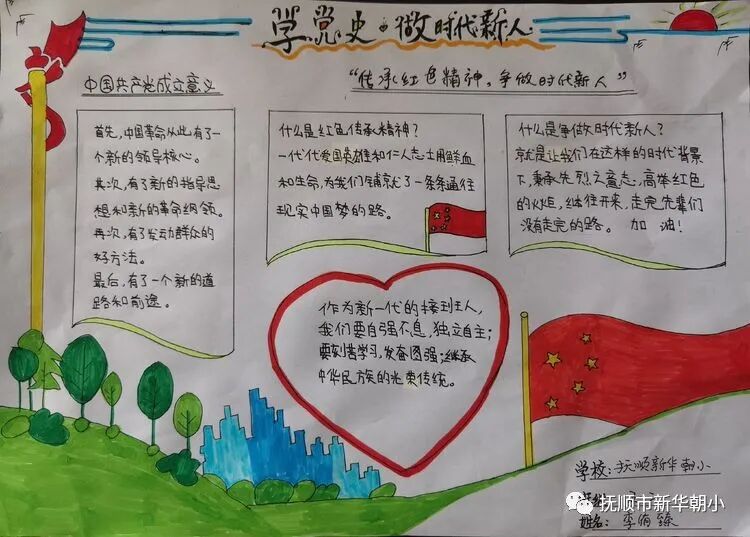 学党史·做时代新人
中国共产党成立意义
"传承红色精神。争做时代新人"
首先,中国革命从此有了
一个新的领导核心。
其次,有了新的指导思
想和新的革命纲领。
再次,有了发动群众的
好方法。
最后,有了一个新的道
路和前途。
什么是红色传承精神?
一代代爱国英雄和仁人志士用鲜血
和生命,为我们铺就了一条条通往
现实中国梦的路。
什么是争做时代新人?
就是让我们在这样的时代背景
下,秉承先烈之意志,高举红色
的火炬,继往开来,走完先辈们
没有走完的路。 加油!
作为新一代的接班人,
我们要自强不息,独立自主;
要刻苦学习,发奋图强;继承
中华民族的光荣传统。
学校:抚顺新华朝小
抚顺市新华朝小
姓名:李